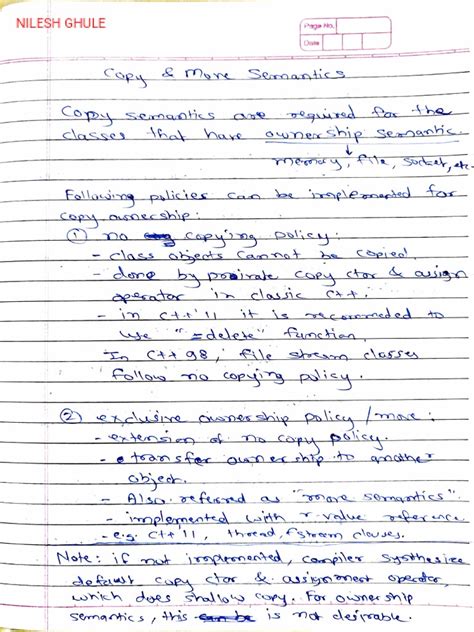 NILESH GHULE
Page No.
Date
Copy & Move Semantics
Copy semantics are required for the
classes that have ownership semantic.
memory, file, socket, etc.
Following policies can be implemented for
copy ownership:
① no copying policy:
- class objects cannot be copied.
- done by private copy ctor & assign
operator in classic C++.
- in C++'11 it is recommended to
use "=delete" function.
In C++98, file stream classes
follow no copying policy.
② exclusive ownership policy/move:
- extension of no copy policy.
- transfer ownership to another
object.
- Also referred as "move semantics".
- implemented with r-value reference.
- e.g. C++'11, thread, fstream classes.
Note: if not implemented, compiler synthesize
default copy ctor & assignment operator,
which does shallow copy. For ownership
semantics, this is not desirable.